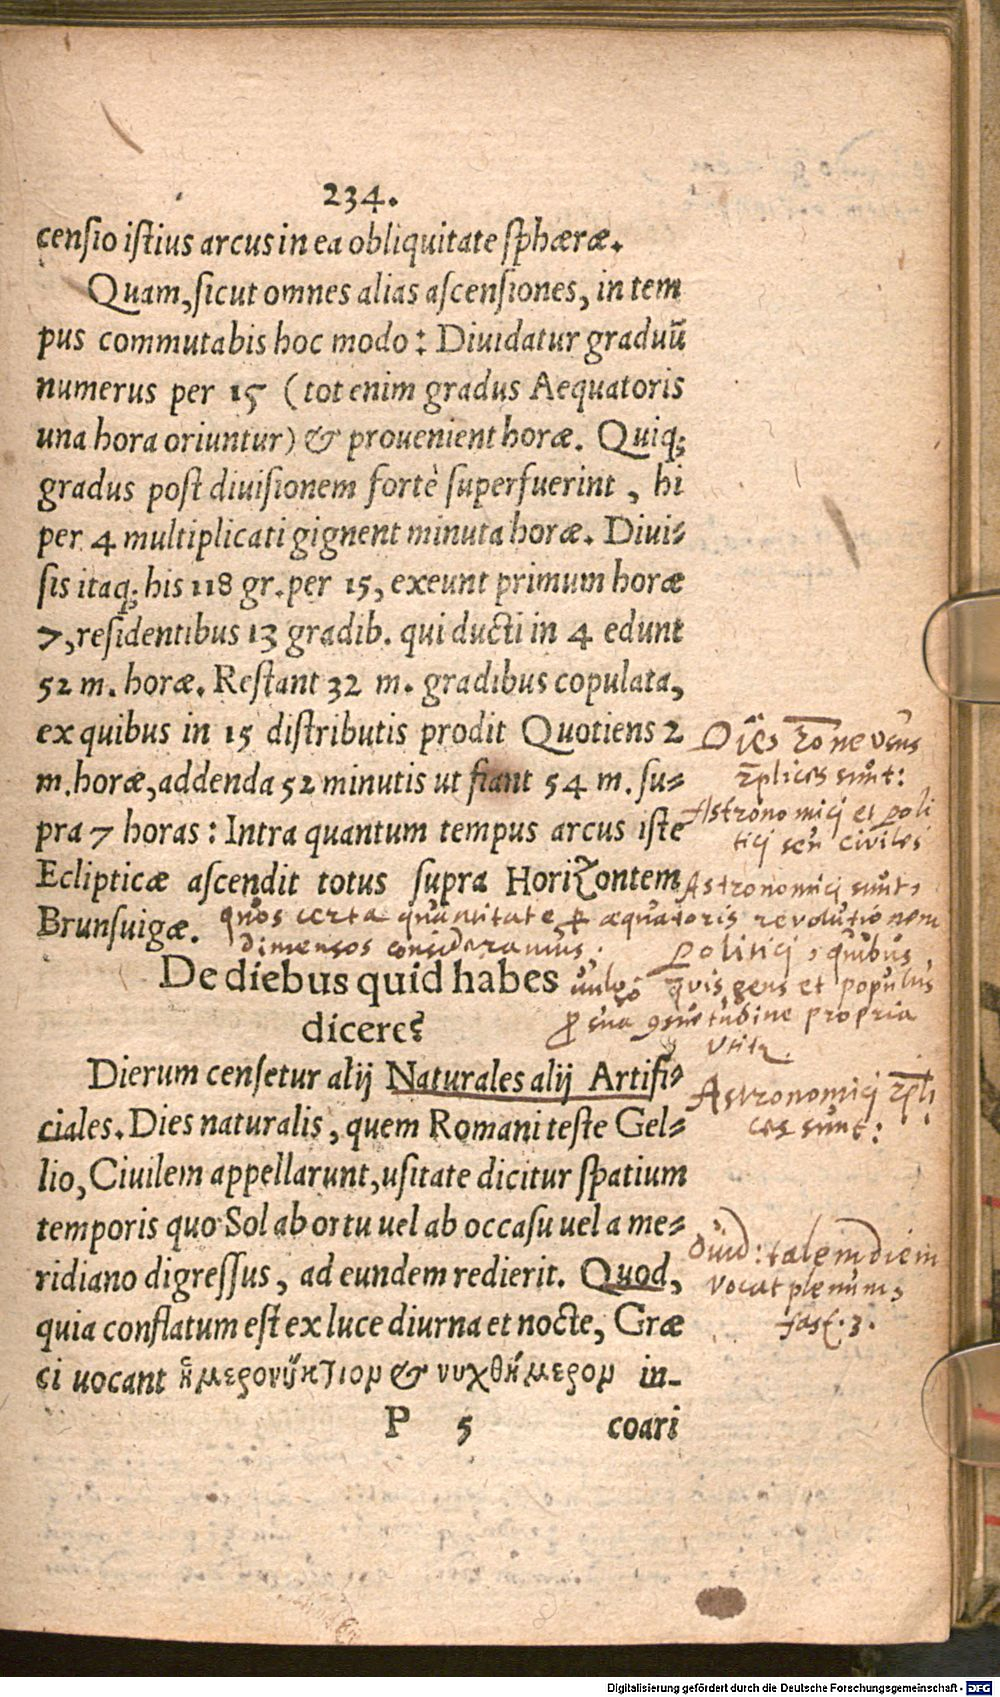 234.
censio istius arcus in ea obliquitate sphæræ.
Quam, sicut omnes alias ascensiones, in tem
pus commutabis hoc modo: Diuidatur graduũ
numerus per 15 (tot enim gradus Aequatoris
una hora oriuntur) & prouenient horæ. Quiq;
gradus post diuisionem fortè superfuerint, hi
per 4 multiplicati gignent minuta horæ. Diui-
sis itaq; his 118 gr. per 15, exeunt primum horæ
7, residentibus 13 gradib. qui ducti in 4 edunt
52 m. horæ. Restant 32 m. gradibus copulata,
ex quibus in 15 distributis prodit Quotiens 2
m. horæ, addenda 52 minutis ut fiant 54 m. su-
pra 7 horas: Intra quantum tempus arcus iste
Eclipticæ ascendit totus supra Horizontem
Brunsuigæ.
Dies usus
sunt:
Astronomici et poli
tici seu civiles
Astronomici sunt,
quos certa quantitate æquatoris revolutionem
dimensos consideramus.
Politici, quibus
quis gens et populus
sua propria
De diebus quid habes
dicere?
Dierum censetur alij Naturales alij Artifi-
ciales. Dies naturalis, quem Romani teste Gel-
lio, Ciuilem appellarunt, usitate dicitur spatium
temporis quo Sol ab ortu uel ab occasu uel a me-
ridiano digressus, ad eundem redierit. Quod,
quia conflatum est ex luce diurna et nocte, Græ
ci uocant ἡμερονύκτιον & νυχθήμερον in-
P 5 coari
Astronomici
ces sunt:
Ouid: talem diem
vocat plenum,
fast. 3.
Digitalisierung gefördert durch die Deutsche Forschungsgemeinschaft - DFG